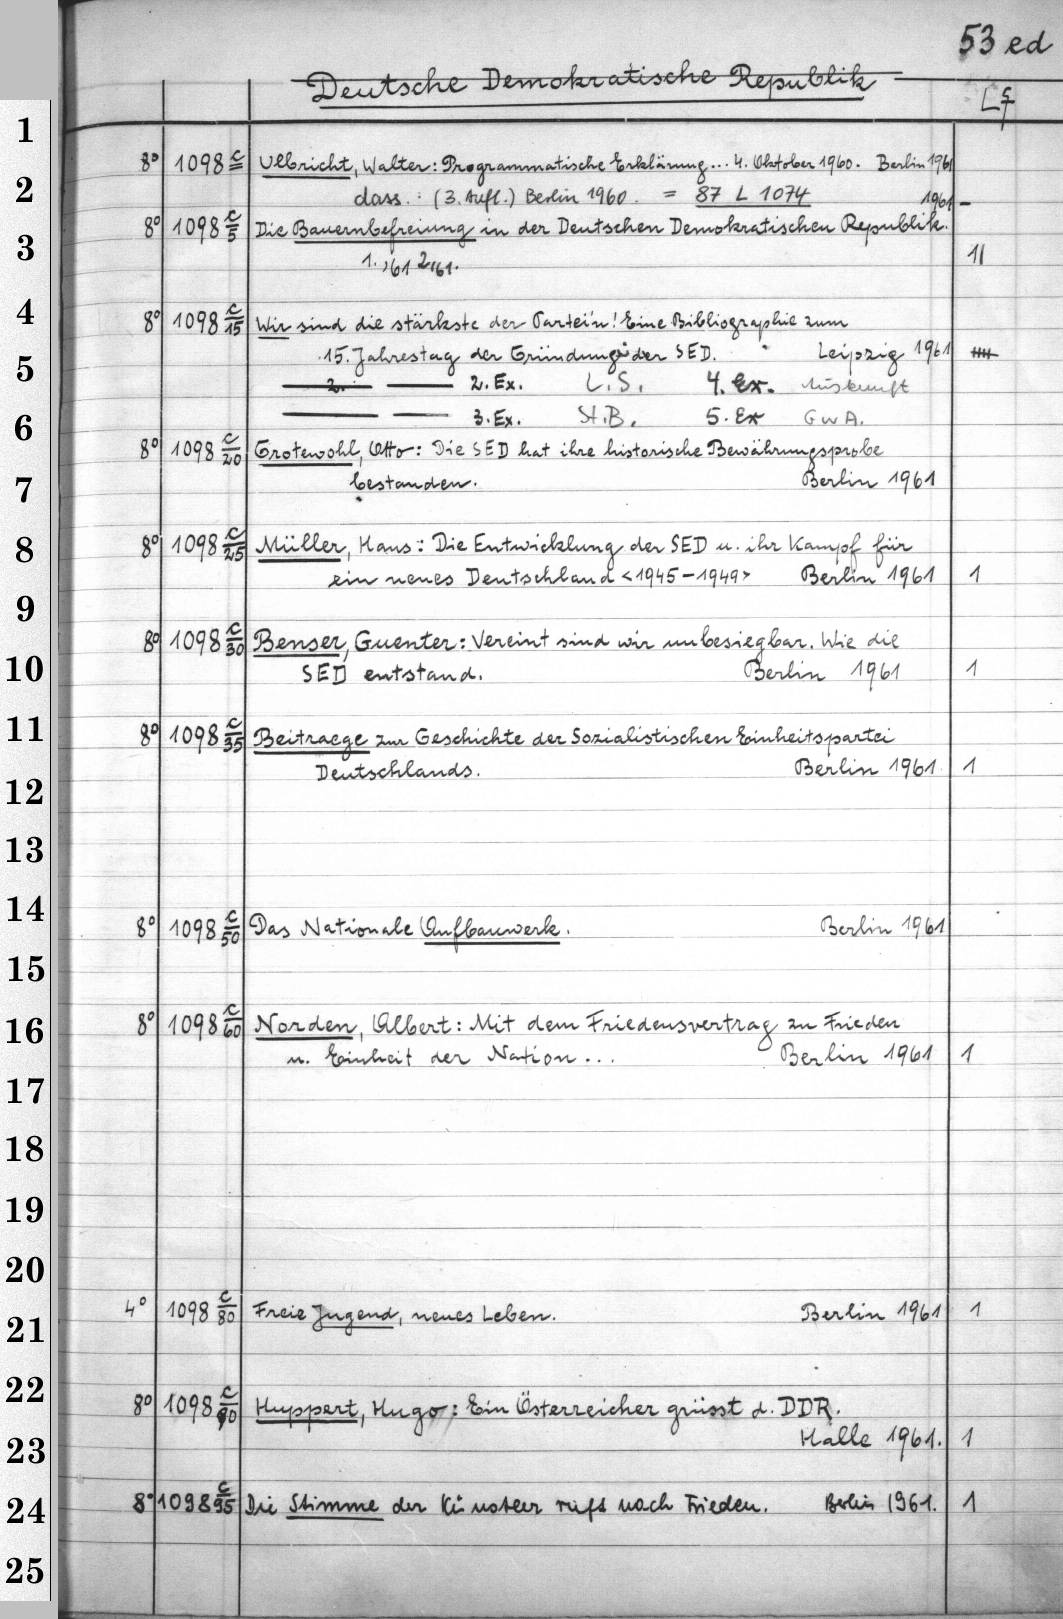 53 ed
Deutsche Demokratische Republik
8° 1098 c Ulbricht, Walter: Programmatische Erklärung... 4. Oktober 1960. Berlin 1961
dass.: (3. Aufl.) Berlin 1960. = 87 L 1074 1961 –
8° 1098 c/5 Die Bauernbefreiung in der Deutschen Demokratischen Republik.
1.,61 2,61. 11
8° 1098 c/15 Wir sind die stärkste der Partei'n! Eine Bibliographie zum
15. Jahrestag der Gründung der SED. Leipzig 1961
2. Ex. L.S. 4. Ex. Auskunft
3. Ex. St.B. 5. Ex GwA.
8° 1098 c/20 Grotewohl, Otto: Die SED hat ihre historische Bewährungsprobe
bestanden. Berlin 1961
8° 1098 c/25 Müller, Hans: Die Entwicklung der SED u. ihr Kampf für
ein neues Deutschland <1945-1949> Berlin 1961 1
8° 1098 c/30 Benser, Guenter: Vereint sind wir unbesiegbar. Wie die
SED entstand. Berlin 1961 1
8° 1098 c/35 Beitraege zur Geschichte der Sozialistischen Einheitspartei
Deutschlands. Berlin 1961 1
8° 1098 c/50 Das Nationale Aufbauwerk. Berlin 1961
8° 1098 c/60 Norden, Albert: Mit dem Friedensvertrag zu Frieden
u. Einheit der Nation... Berlin 1961 1
4° 1098 c/80 Freie Jugend, neues Leben. Berlin 1961 1
8° 1098 c/90 Huppert, Hugo: Ein Österreicher grüsst d. DDR.
Halle 1961. 1
8° 1098 c/95 Die Stimme der Künstler ruft nach Frieden. Berlin 1961. 1
1
2
3
4
5
6
7
8
9
10
11
12
13
14
15
16
17
18
19
20
21
22
23
24
25